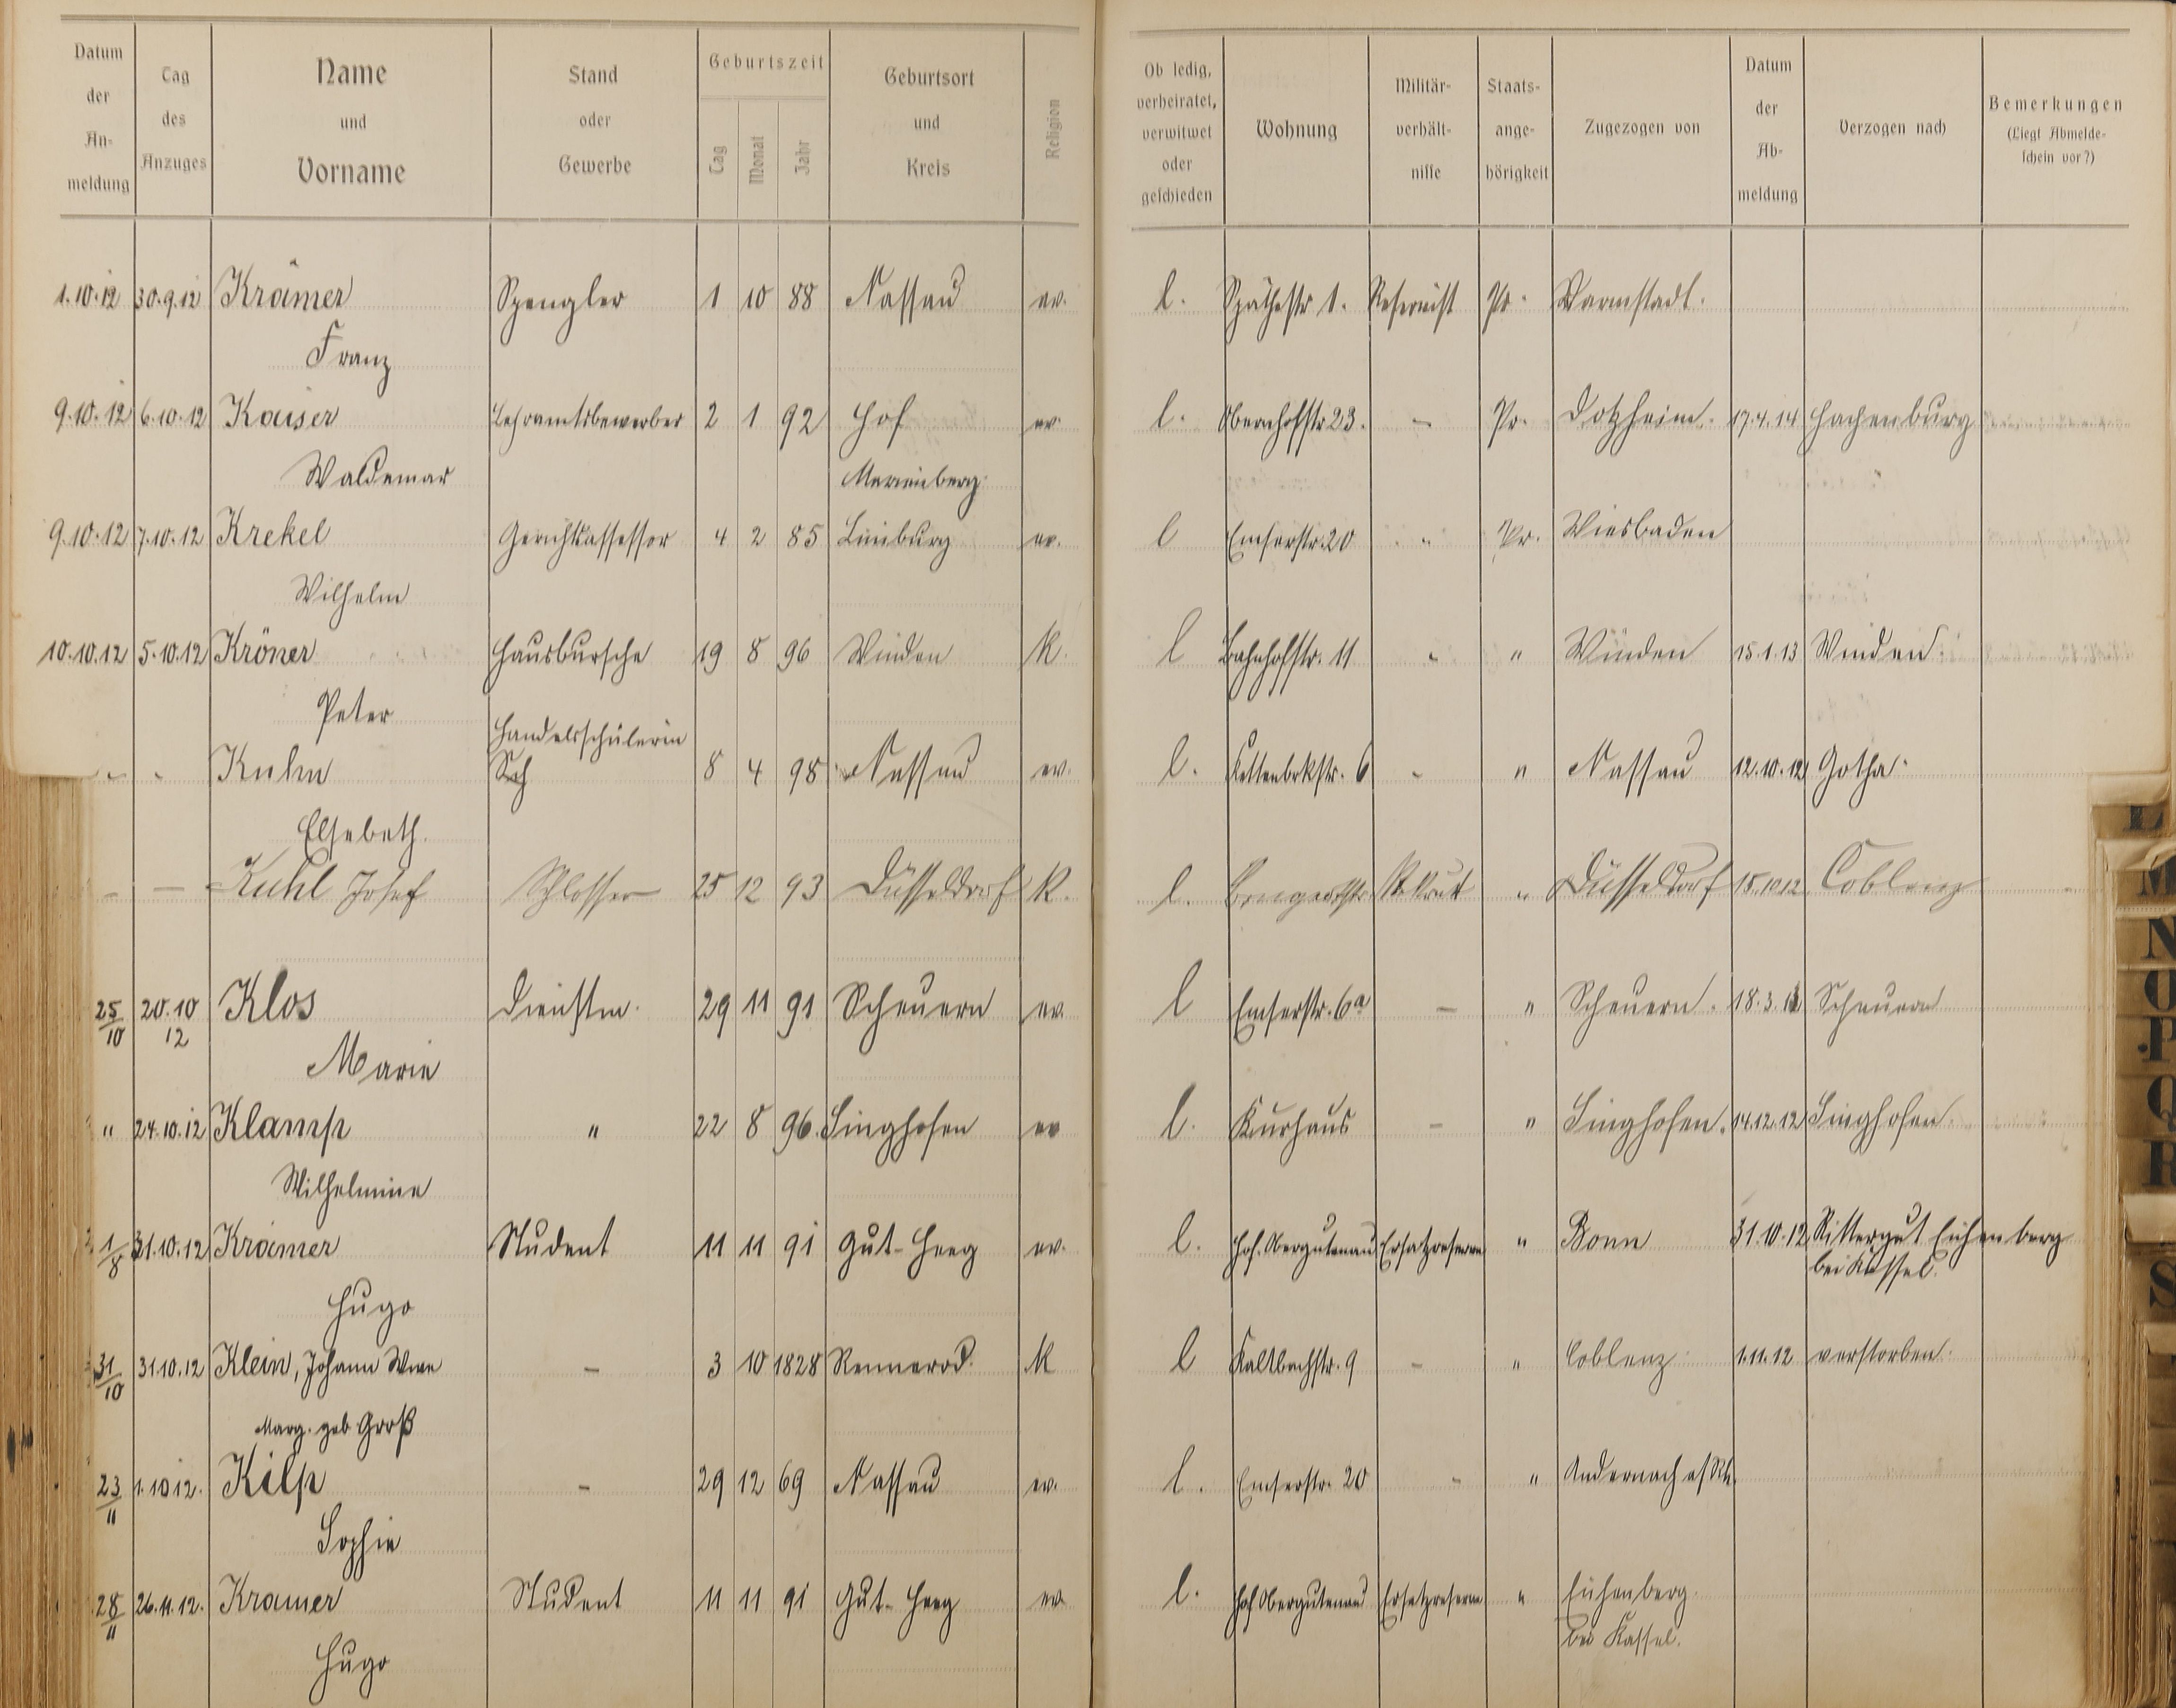 Datum der An- meldung | Tag des Anzuges | Name und Vorname | Stand oder Gewerbe | Geburtszeit Tag Monat Jahr | Geburtsort und Kreis | Religion | Ob ledig, verheiratet, verwitwet oder geschieden | Wohnung | Militär- verhält- nisse | Staats- ange- hörigkeit | Zugezogen von | Datum der Ab- meldung | Verzogen nach | Bemerkungen (Liegt Abmelde- schein vor?)
1.10.12 30.9.12 Krämer Spengler 1 10 88 Nassau ev. l. Späthestr 1. Reservist Pr. Darmstadt.
Franz
9.10.12 6.10.12 Kaiser Lehramtsbewerber 2 1 92 Hof ev. l. Obernhofstr 23. – Pr. Dotzheim. 17.4.14 Hachenburg
Waldemar Marienberg
9.10.12 7.10.12 Krekel Gerichtsassessor 4 2 85 Limburg ev. l Emserstr. 20 " Pr. Wiesbaden
Wilhelm
10.10.12 5.10.12 Kröner Hausbursche 19 8 96 Winden K. l Bahnhofstr. 11 " " Winden 15.1.13 Winden.
Peter
Handelsschülerin
" " Kuhn Sch 8 4 98 Nassau ev. l. Kettenbrkstr. 6 - " Nassau 12.10.12 Gotha.
Elsebeth.
– – Kuhl Josef Schlosser 25 12 93 Düsseldorf K. l. Rekrut " Düsseldorf 15.10.12 Coblenz
25/10 20.10 12 Klos Dienstm. 29 11 91 Scheuern ev. l Emserstr. 6a – " Scheuern. 18.3. Scheuern
Marie
" 24.10.12 Klamp " 22 8 96. Singhofen ev l. Kurhaus – " Singhofen. 14.12.12 Singhofen.
Wilhelmine
1/8 31.10.12 Krämer Student 11 11 91 Gut-Heeg ev. l. Hof. Obergutenau Ersatzreserve " Bonn 31.10.12 Rittergut Eichenberg
bei Kassel.
Hugo
31/10 31.10.12 Klein, Johann Wwe – 3 10 1828 Rennerod. K l Kaltbachstr. 9 – " Coblenz 1.11.12 verstorben.
Marg. geb. Groß
23/11 1.10.12. Kilp – 29 12 69 Nassau ev. l. Emserstr. 20 – " Andernach a/Rh.
Sophie
28/11 26.11.12. Kramer Student 11 11 91 Gut-Heeg ev l. Hof Obergutenau Ersatzreserve " Eichenberg.
bei Kassel.
Hugo
L
M
N
O
P
Q
R
S